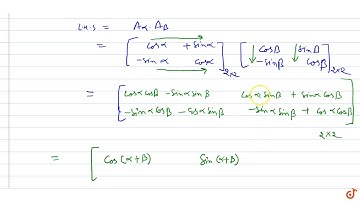 L.H.S = Aα. Aβ
= [ cosα +sinα -sinα cosα ]2×2 [ cosβ sinβ -sinβ cosβ ]2×2
= [ cosα cosβ - sinα sinβ cosα sinβ + sinα cosβ
-sinα cosβ - cosα sinβ -sinα sinβ + cosα cosβ ]
2×2
= [ cos(α+β) sin(α+β)